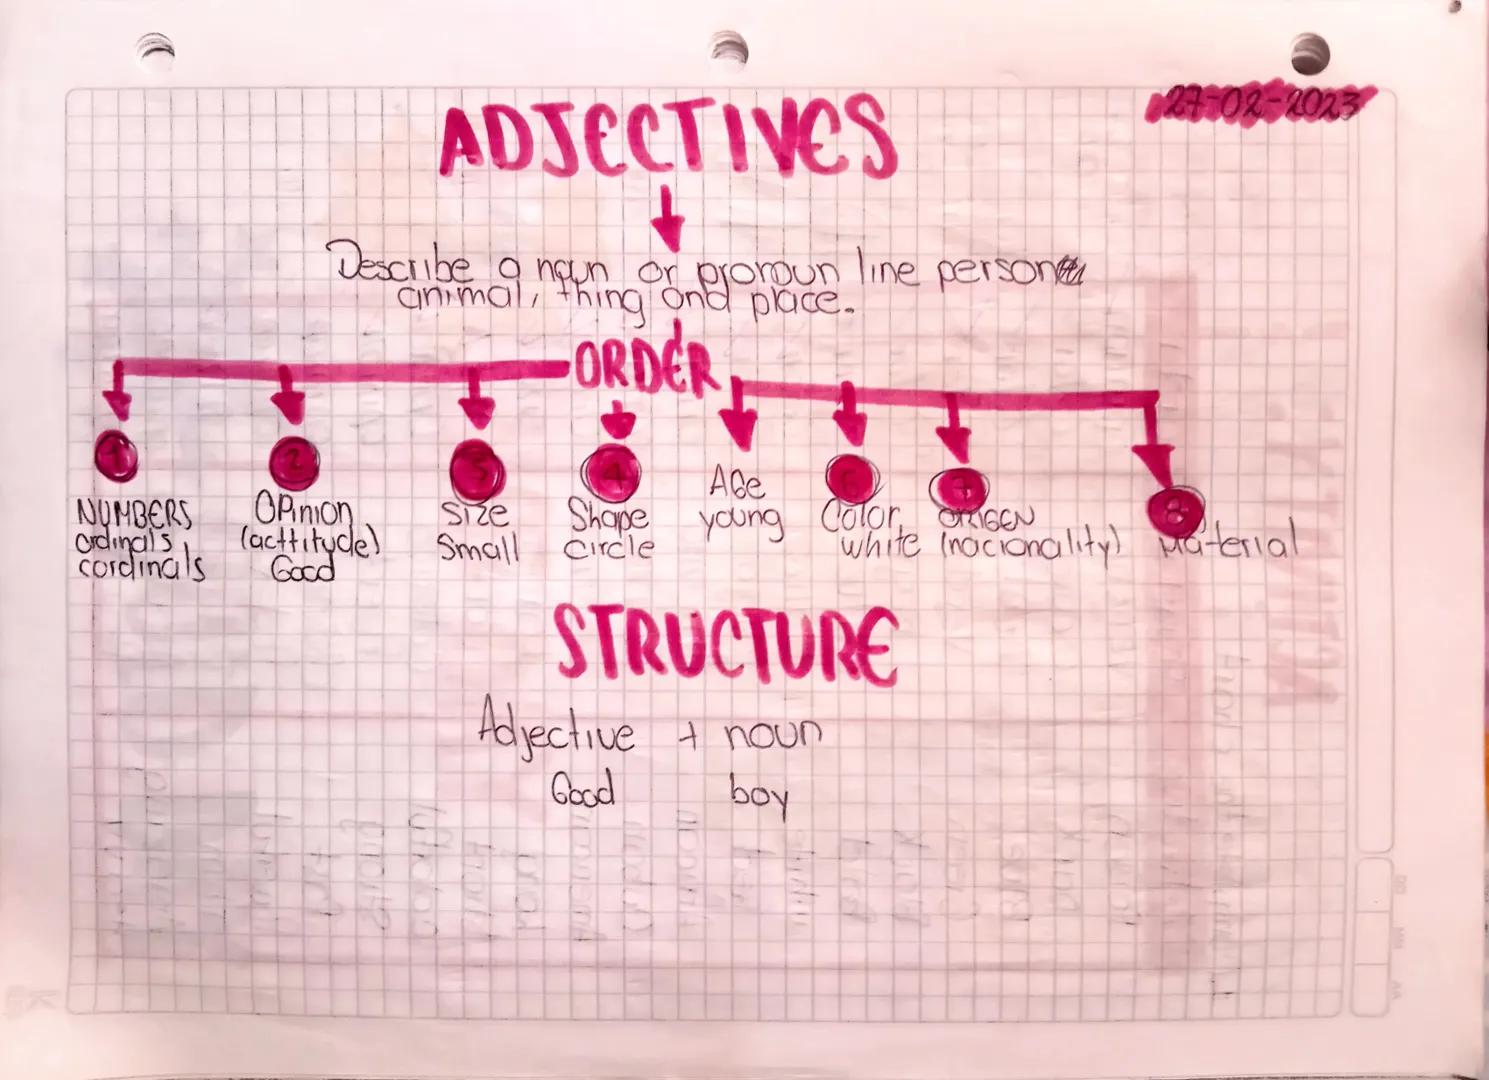 27-02-2023
ADJECTIVES
Describe a noun or pronoun line person
animal, thing and place.
ORDER
1 2 3 4 6 7 8
NUMBERS
ordinals,
cardinals
OPinion
(acttitude)
Good
Size
Small
Shape
circle
AGe
young
Color
white
ORIGEN
(nacionality)
Material
STRUCTURE
Adjective + noun
Good boy